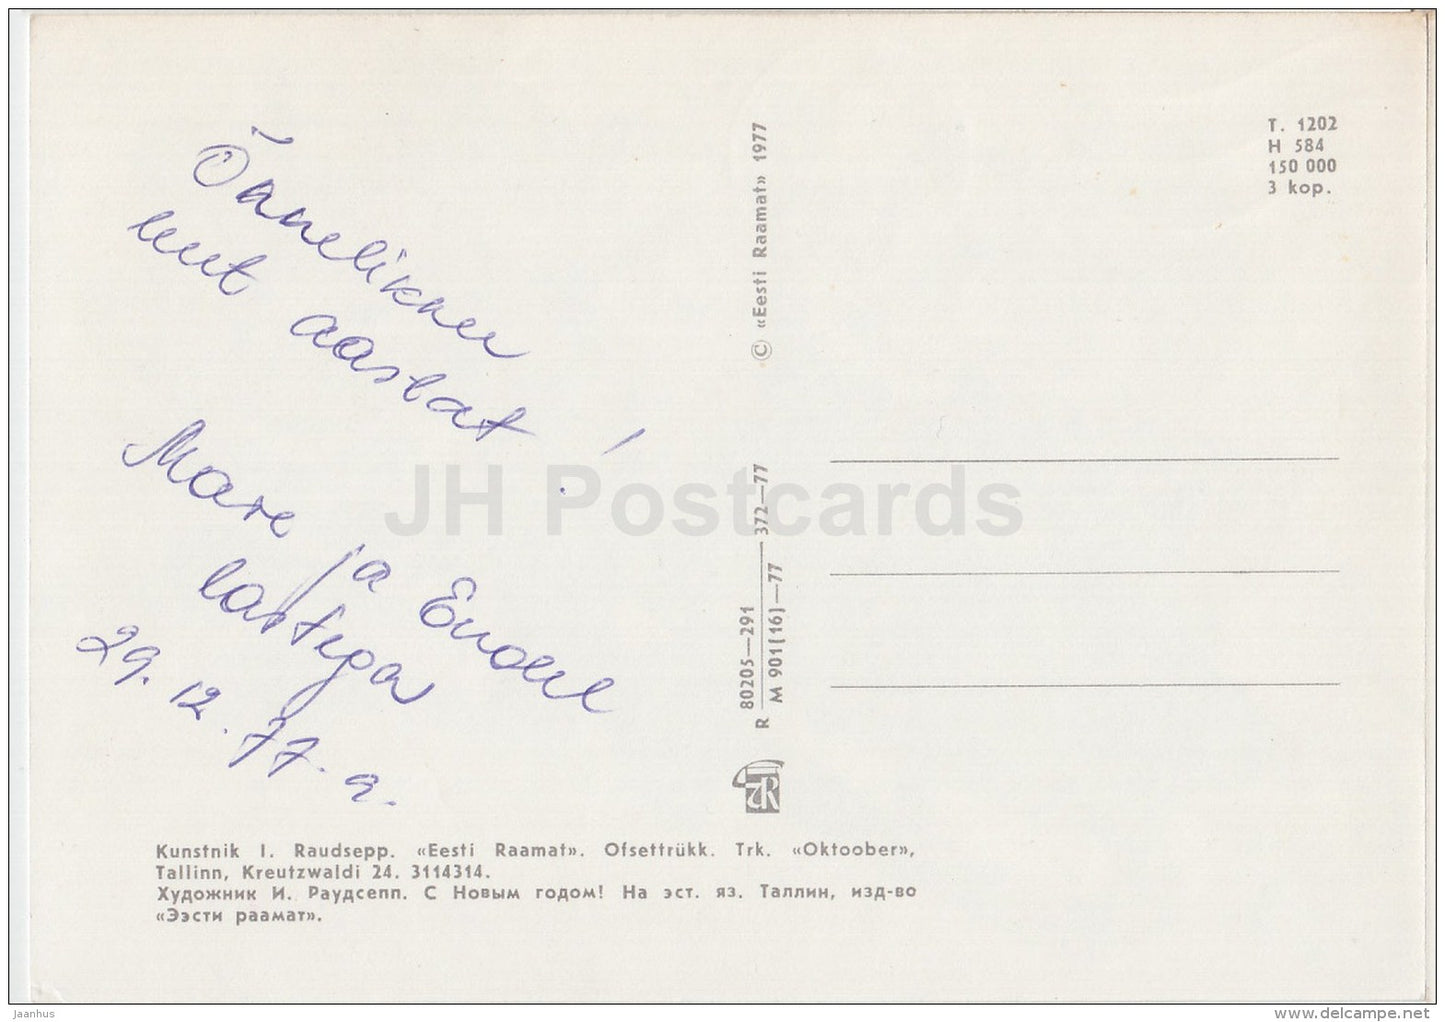 Õnnelikku
uut aastat!
Mare ja Endel
lastega
29.12.77.a.
© «Eesti Raamat» 1977
T. 1202
H 584
150 000
3 kop.
R 80205—291 372—77
M 901(16)—77
JH Postcards
Kunstnik I. Raudsepp. «Eesti Raamat». Ofsettrükk. Trk. «Oktoober»,
Tallinn, Kreutzwaldi 24. 3114314.
Художник И. Раудсепп. С Новым годом! На эст. яз. Таллин, изд-во
«Ээсти раамат».
Jaanhus
www.delcampe.net